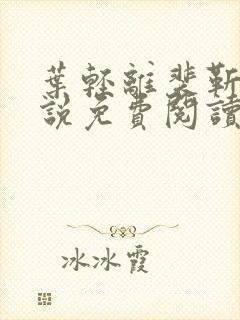 葉輕離裴靳
說免費閱讀
冰冰霞